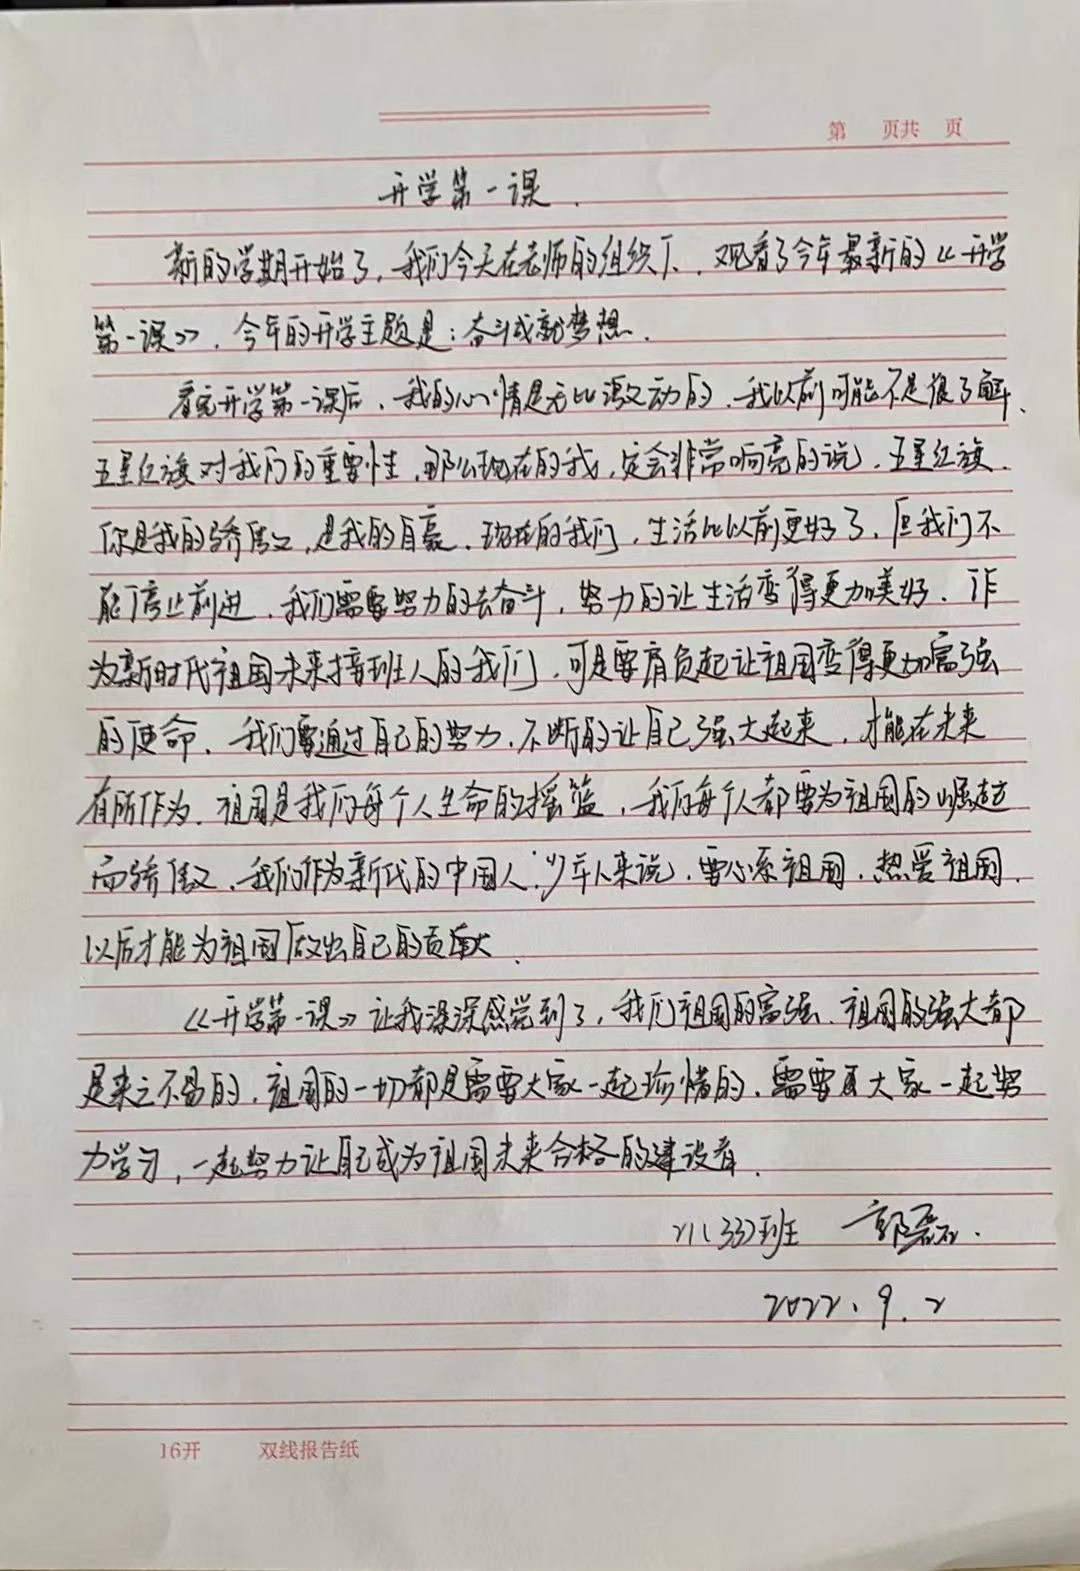 第 页共 页
开学第一课.
新的学期开始了,我们今天在老师的组织下,观看了今年最新的《开学
第一课》,今年的开学主题是:奋斗成就梦想.
看完开学第一课后,我的心情是无比激动的,我以前可能不是很了解,
五星红旗对我们的重要性,那么现在的我,定会非常响亮的说,五星红旗,
你是我的骄傲,是我的自豪,现在的我们,生活比以前更好了,但我们不
能停止前进,我们需要努力的去奋斗,努力的让生活变得更加美好,作
为新时代祖国未来接班人的我们,可是要肩负起让祖国变得更加富强
的使命,我们要通过自己的努力,不断的让自己强大起来,才能在未来
有所作为,祖国是我们每个人生命的摇篮,我们每个人都要为祖国的崛起
而骄傲,我们作为新代的中国人,少年人来说,要心系祖国,热爱祖国,
以后才能为祖国做出自己的贡献.
《开学第一课》让我深深感觉到了,我们祖国的富强,祖国的强大都
是来之不易的,祖国的一切都是需要大家一起珍惜的,需要大家一起努
力学习,一起努力让自己成为祖国未来合格的建设者.
(33)班 郭磊.
2022.9.2
16开 双线报告纸